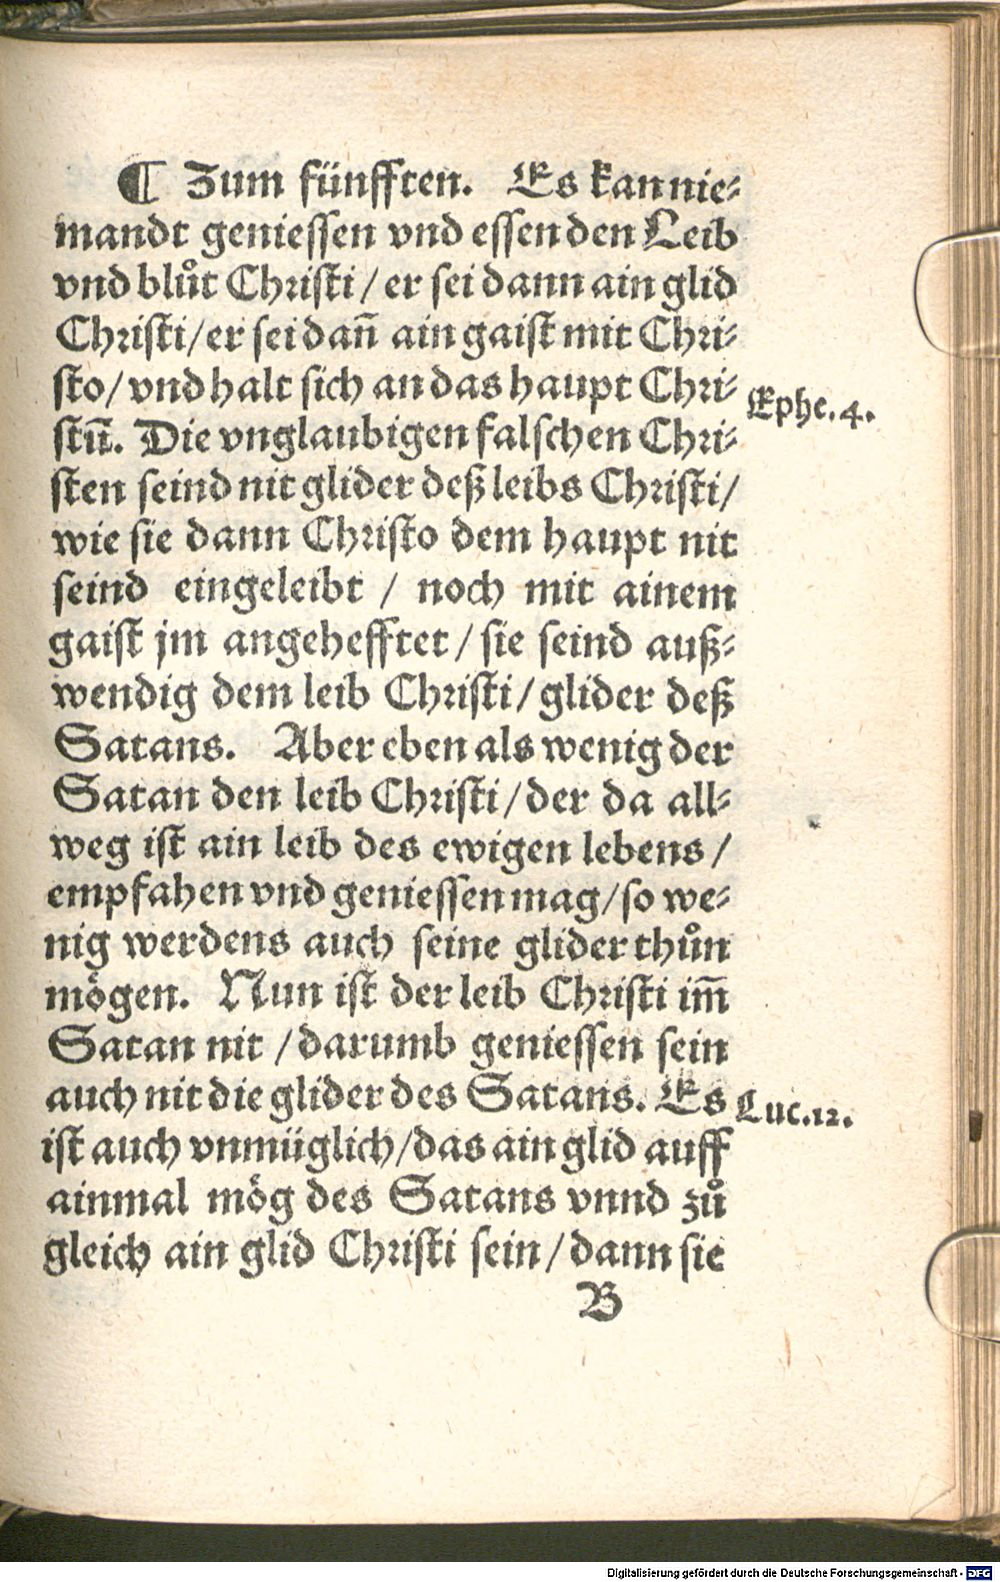 ¶ Zum fünfften. Es kan nie⸗
mandt geniessen vnd essen den Leib
vnd blůt Christi / er sei dann ain glid
Christi / er sei dañ ain gaist mit Chri⸗
sto / vnd halt sich an das haupt Chri⸗
Ephe. 4.
stū. Die vnglaubigen falschen Chri⸗
sten seind nit glider deß leibs Christi /
wie sie dann Christo dem haupt nit
seind eingeleibt / noch mit ainem
gaist jm angehefftet / sie seind auß⸗
wendig dem leib Christi / glider deß
Satans. Aber eben als wenig der
Satan den leib Christi / der da all⸗
weg ist ain leib des ewigen lebens /
empfahen vnd geniessen mag / so we⸗
nig werdens auch seine glider thůn
mögen. Nun ist der leib Christi im̄
Satan nit / darumb geniessen sein
auch nit die glider des Satans. Es
Luc. 12.
ist auch vnmüglich / das ain glid auff
ainmal mög des Satans vnnd zů
gleich ain glid Christi sein / dann sie
B
Digitalisierung gefördert durch die Deutsche Forschungsgemeinschaft - DFG